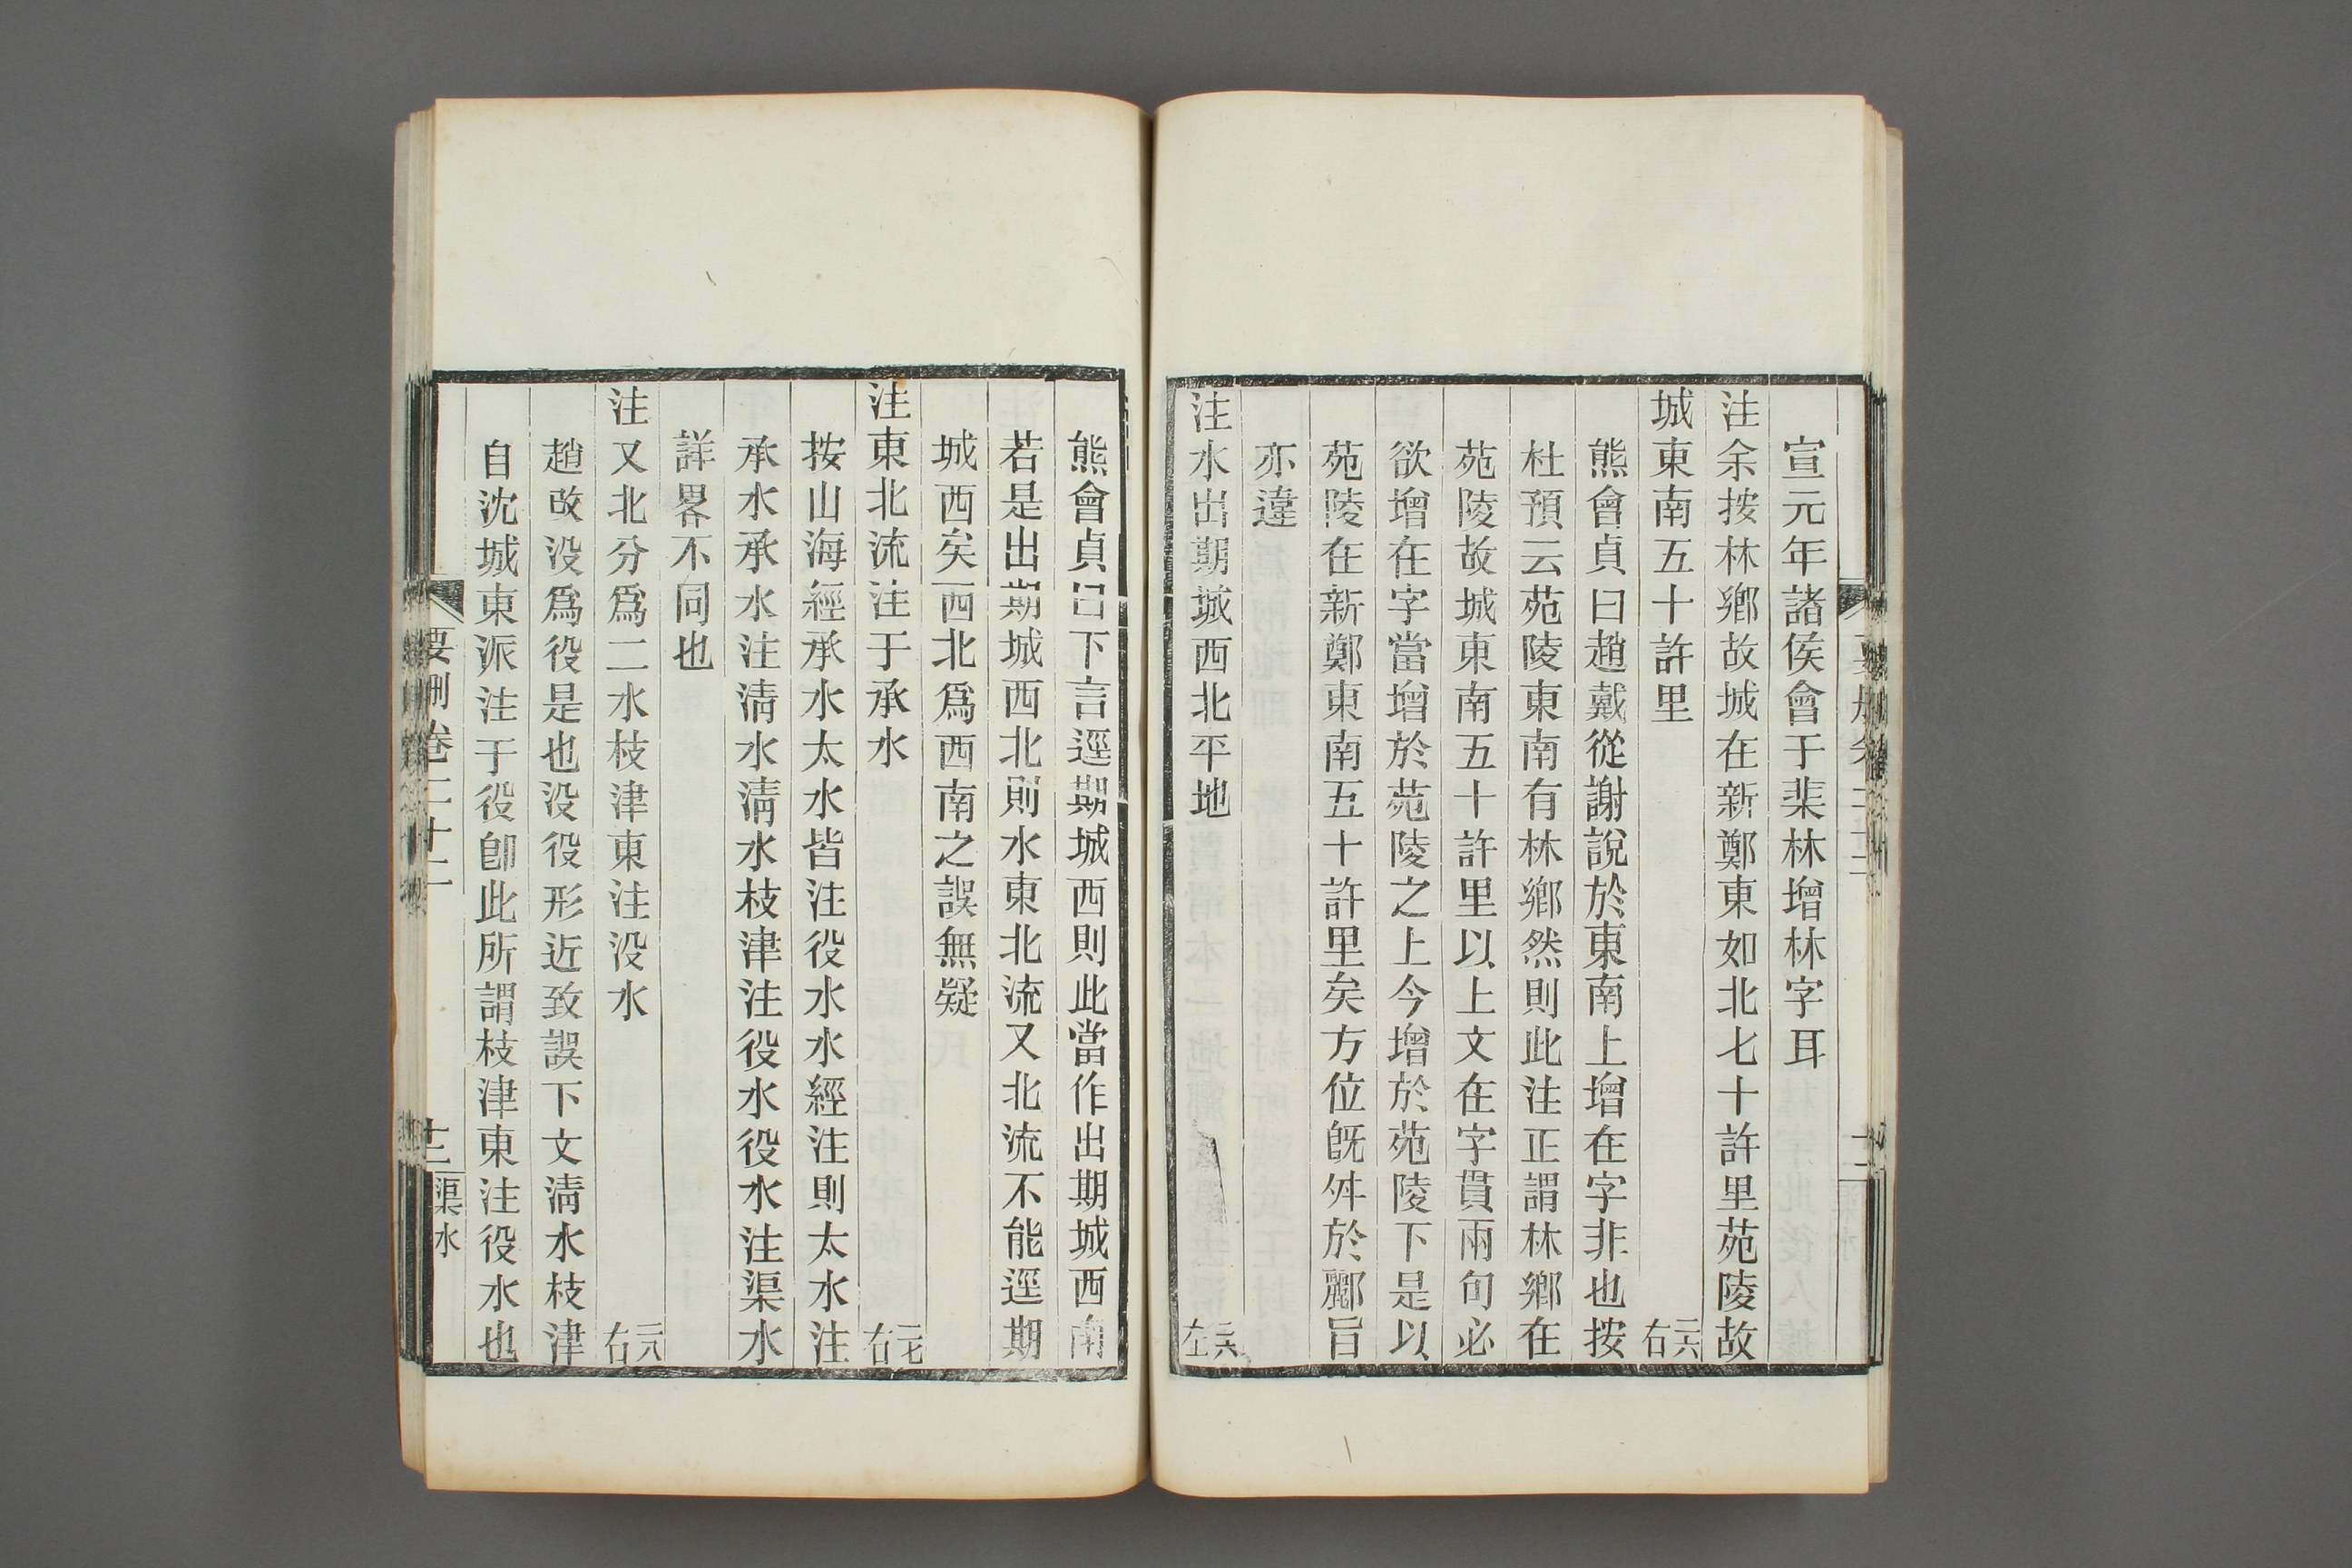 宣元年諸侯會于棐林增林字耳
注余按林鄉故城在新鄭東如北七十許里苑陵故
城東南五十許里 二六右
熊會貞曰趙戴從謝說於東南上增在字非也按
杜預云苑陵東南有林鄉然則此注正謂林鄉在
苑陵故城東南五十許里以上文在字貫兩句必
欲增在字當增於苑陵之上今增於苑陵下是以
苑陵在新鄭東南五十許里矣方位旣舛於酈旨
亦違
注水出期城西北平地 二六左
熊會貞曰下言逕期城西則此當作出期城西南
若是出期城西北則水東北流又北流不能逕期
城西矣西北爲西南之誤無疑
注東北流注于承水 二七右
按山海經承水太水皆注役水水經注則太水注
承水承水注清水清水枝津注役水役水注渠水
詳畧不同也
注又北分爲二水枝津東注没水 二八右
趙改没爲役是也没役形近致誤下文清水枝津
自沈城東派注于役卽此所謂枝津東注役水也
要刪卷二十二
十二
渠水